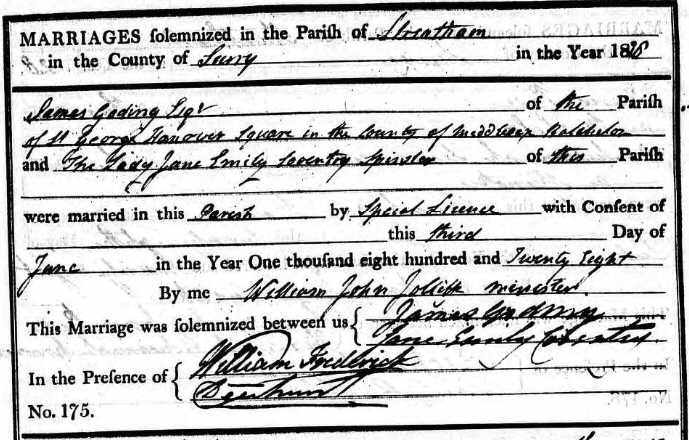 MARRIAGES solemnized in the Parish of Streatham
in the County of Surry in the Year 1828
James Goding Esqr of the Parish
of St George Hanover Square in the County of Middlesex Batchelor
and The Lady Jane Emily Coventry Spinster of this Parish
were married in this Parish by Special Licence with Consent of
this third Day of
June in the Year One thousand eight hundred and Twenty Eight
By me William John Jolliffe Minister
This Marriage was solemnized between us { James Goding
Jane Emily Coventry
In the Presence of { William Frederick
No. 175.